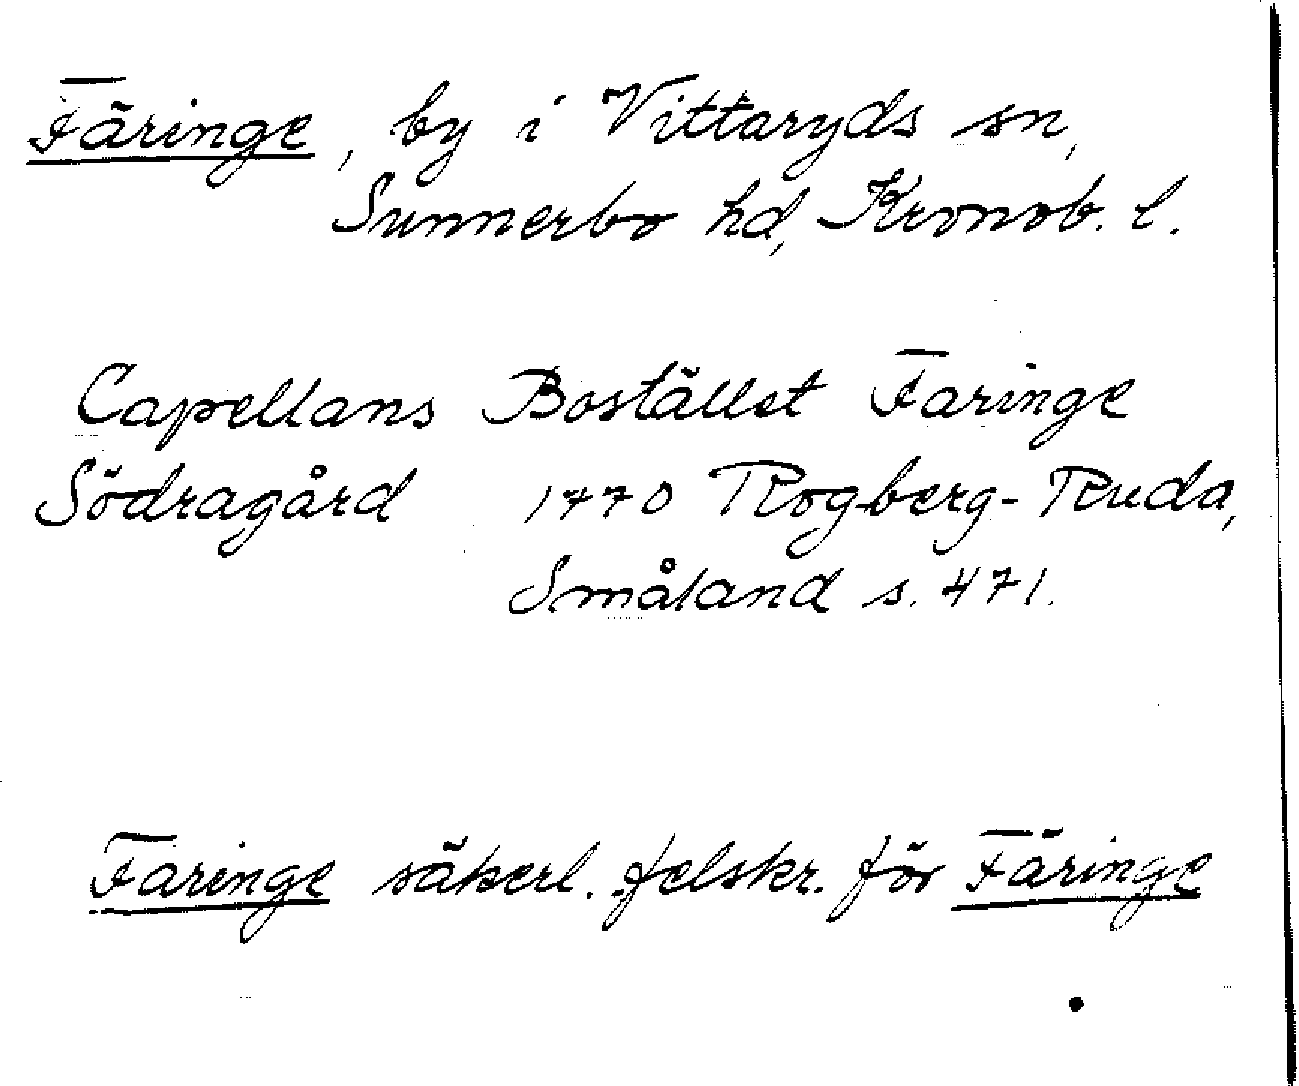 Färinge, by i Vittaryds sn,
Sunnerbo hd, Kronob. l.
Capellans Bostället Faringe
Södragård 1770 Rogberg-Ruda,
Småland s. 471.
Faringe säkerl. felskr. för Färinge